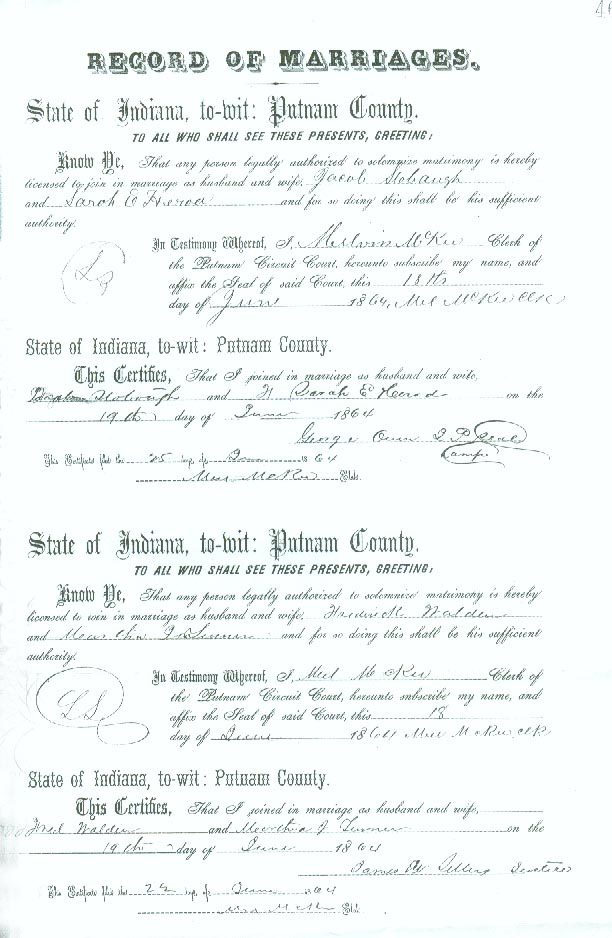 RECORD OF MARRIAGES.
State of Indiana, to-wit: Putnam County.
TO ALL WHO SHALL SEE THESE PRESENTS, GREETING:
Know Ye, That any person legally authorized to solemnize matrimony is hereby
licensed to join in marriage as husband and wife, Jacob
and Sarah E Herod and for so doing this shall be his sufficient
authority.
In Testimony Whereof, I, Melvin McKee Clerk of
the Putnam Circuit Court, hereunto subscribe my name, and
affix the Seal of said Court, this 18th
LS
day of June 1864, Mel McKee Clk
State of Indiana, to-wit: Putnam County.
This Certifies, That I joined in marriage as husband and wife,
and Sarah E Herod on the
19th day of June 1864
George J.P. Seal
This Certificate filed the 25 day of June 1864
Mel McKee Clk.
State of Indiana, to-wit: Putnam County.
TO ALL WHO SHALL SEE THESE PRESENTS, GREETING:
Know Ye, That any person legally authorized to solemnize matrimony is hereby
licensed to join in marriage as husband and wife, M. Walden
and Martha J. and for so doing this shall be his sufficient
authority.
In Testimony Whereof, I, Mel McKee Clerk of
the Putnam Circuit Court, hereunto subscribe my name, and
LS
affix the Seal of said Court, this 18
day of June 1864 Mel McKee Clk
State of Indiana, to-wit: Putnam County.
This Certifies, That I joined in marriage as husband and wife,
Walden and Martha J. Turner on the
19th day of June 1864
James
This Certificate filed the 22 day of June 1864
Clk.